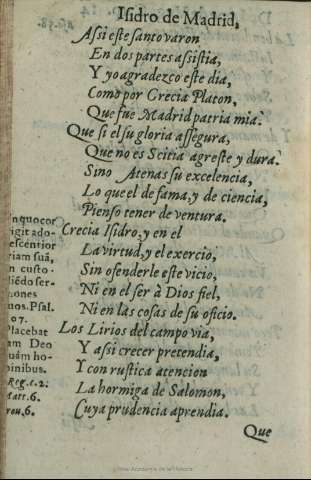 Isidro de Madrid,
Assi este santo varon
En dos partes assistia,
Y yo agradezco este dia,
Como por Grecia Platon,
Que fue Madrid patria mia.
Que si el su gloria assegura,
Que no es Scitia agreste y dura,
Sino Atenas su excelencia,
Lo que el de fama, y de ciencia,
Pienso tener de ventura.
Crecia Isidro, y en el
La virtud, y el exercio,
Sin ofenderle este vicio,
Ni en el ser à Dios fiel,
Ni en las cosas de su oficio.
Los Lirios del campo via,
Y assi crecer pretendia,
Y con rustica atencion
La hormiga de Salomon,
Cuya prudencia aprendia.
Que
n quo cor
rigit ado-
escentior
riam suã,
n custo-
iẽdo ser-
nones
uos. Psal.
Placebat
am Deo
uàm ho-
ninibus.
Reg. c. 2.
Matt. 6.
rou. 6.